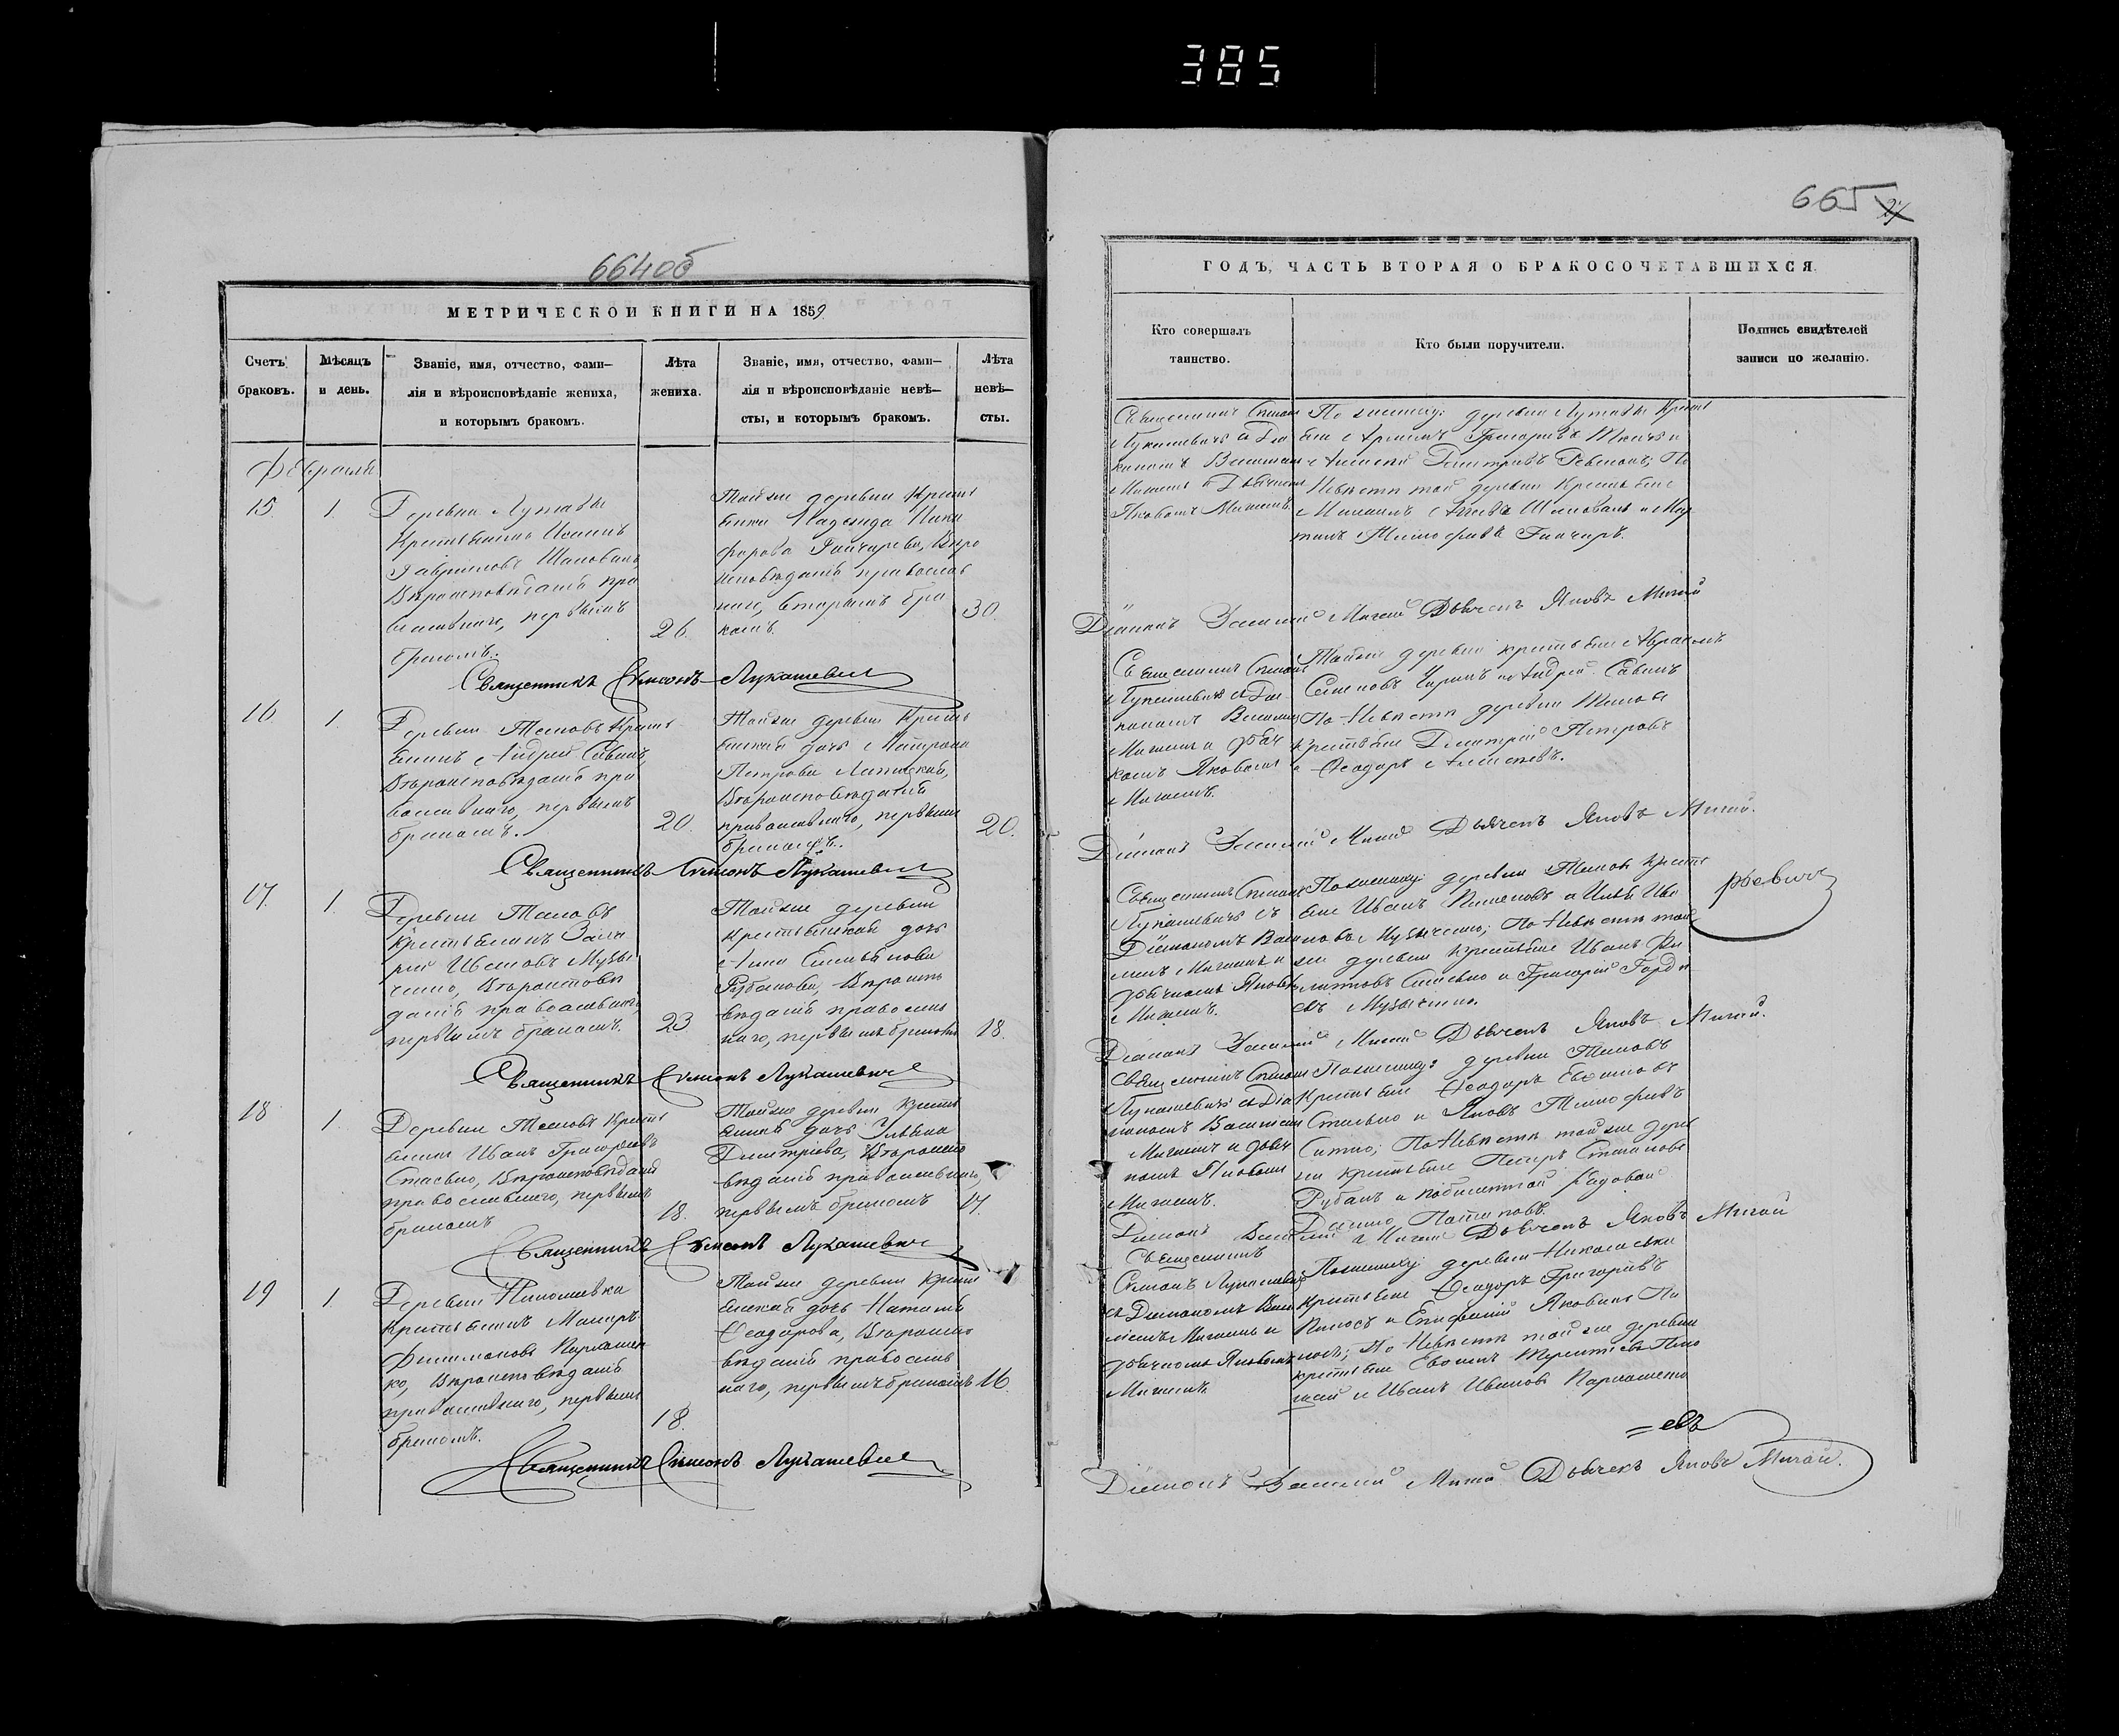 385
664об
МЕТРИЧЕСКОЙ КНИГИ НА 1859
Счетъ браковъ.
Мѣсяцъ и день.
Званіе, имя, отчество, фами-
лія и вѣроисповѣданіе жениха,
и которымъ бракомъ.
Лѣта жениха.
Званіе, имя, отчество, фами-
лія и вѣроисповѣданіе невѣ-
сты, и которымъ бракомъ.
Лѣта невѣ-
сты.
Февраля
15. 1.
Деревни Лутавы
Крестьянинъ
Гавриловъ Шаповалъ,
Вѣроисповѣданія пра
вославнаго, первымъ
бракомъ.
26.
Тойже деревни Кресть
янка Надежда Ники
форова Гончарева, Вѣро
исповѣданія православ
наго, вторымъ бра
комъ.
30.
Священникъ Симонъ Лукашевич
16 1.
Деревни Кресть
янинъ Андрей Савинъ,
Вѣроисповѣданія пра
вославнаго, первымъ
бракомъ.
20.
Тойже деревни Кресть
янская дочь Матрона
Петрова
Вѣроисповѣданія
православнаго, первымъ
бракомъ.
20.
Священникъ Симонъ Лукашевич
17. 1.
Деревни
Крестьянинъ Заха
рий Ивановъ Музы
ченко, Вѣроисповѣ
данія православнаго,
первымъ бракомъ.
23
Тойже деревни
Крестьянская дочь
Анна Емельянова
Рубанова, Вѣроиспо
вѣданія православ
наго, первымъ бракомъ
18.
Священникъ Симонъ Лукашевичъ
18 1
Деревни Кресть
янинъ Иванъ Григорьевъ
Стасько, Вѣроисповѣданія
православнаго, первымъ
бракомъ
18.
Тойже деревни Кресть
янина дочь Ульяна
Дмитріева, Вѣроиспо
вѣданія православнаго,
первымъ бракомъ
17.
Священникъ Симонъ Лукашевич
19 1.
Деревни Николаевки
Крестьянинъ Макаръ
Филимоновъ Пархомен
ко, Вѣроисповѣданія
православнаго, первымъ
бракомъ.
18.
Тойже деревни Кресть
янская дочь Наталія
Ѳеодорова, Вѣроиспо
вѣданія православ
наго, первымъ бракомъ
16.
Священникъ Симонъ Лукашевич
665
ГОДЪ, ЧАСТЬ ВТОРАЯ О БРАКОСОЧЕТАВШИХСЯ.
Кто совершалъ
таинство.
Кто были поручители.
Подпись свидѣтелей
записи по желанію.
Священникъ Симонъ
Лукашевичъ съ Діа
кономъ Василіемъ
Мигаемъ и Дьячкомъ
Яковомъ Мигаемъ.
По женику: деревни Лутавы Кресть
яне Григорьевъ и
Алексѣй Дмитріевъ По
Невѣстѣ той деревни Крестьяне
Шаповалъ и Мар
тинъ Тимофѣевъ Гончаръ.
Діаконъ Василій Мигай Дьячекъ Яковъ Мигай
Священникъ Симонъ
Лукашевичъ съ Діа
кономъ Василіемъ
Мигаемъ и дьяч
комъ Яковомъ
Мигаемъ.
Тойже деревни крестьяне Авраамъ
Семеновъ и Андрей Савинъ
По Невѣстѣ деревни
Крестьяне Дмитрій Петровъ
и Ѳеодоръ Алексѣевъ.
Діаконъ Василій Мигай Дьячекъ Яковъ Мигай.
Священникъ Симонъ
Лукашевичъ съ
Діакономъ Васи
ліемъ Мигаемъ и
дьячкомъ Яковомъ
Мигаемъ.
По женику: деревни Кресть
яне Иванъ и Илья Ива
новъ Музыченко; По Невѣстѣ той
же деревни Крестьяне Иванъ Фи
липповъ Стасько и Григорій Гордѣ
евъ Музыченко.
рьевич
Діаконъ Василій Мигай Дьячекъ Яковъ Мигай.
Священникъ Симонъ
Лукашевичъ съ Діа
кономъ Василіемъ
Мигаемъ и дьяч
комъ Яковомъ
Мигаемъ.
По женику: деревни
Крестьяне Ѳеодоръ Евѳимовъ
Стасько и Яковъ Тимофѣевъ
По Невѣстѣ той же дерев
ни крестьяне Петръ Степановъ
Рубанъ и рядовой
Діаконъ Василій Мигай Дьячекъ Яковъ Мигай
Священникъ
Симонъ Лукашевичъ
съ Діакономъ Васи
ліемъ Мигаемъ и
дьячкомъ Яковомъ
Мигаемъ.
По женику: деревни Николаевки
крестьяне Ѳеодоръ Григорьевъ
и Епифаній Яковлевъ
По Невѣстѣ той же деревни
крестьяне Евѳимъ Терентіевъ
и Иванъ Ивановъ Пархоменко
=евъ
Діаконъ Василій Мигай Дьячекъ Яковъ Мигай.